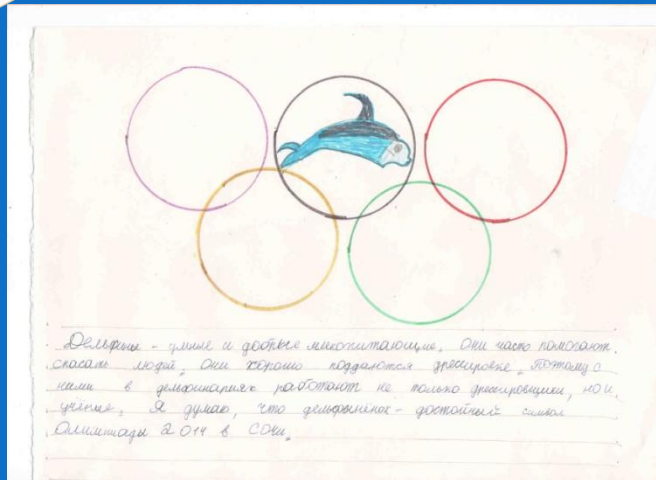 Дельфины - умные и добрые млекопитающие, они часто помогают
спасать людей, они хорошо поддаются дрессировке, поэтому с
ними в дельфинариях работают не только дрессировщики, но и
учёные, Я думаю, что дельфинёнок - достойный символ
Олимпиады 2014 в Сочи,